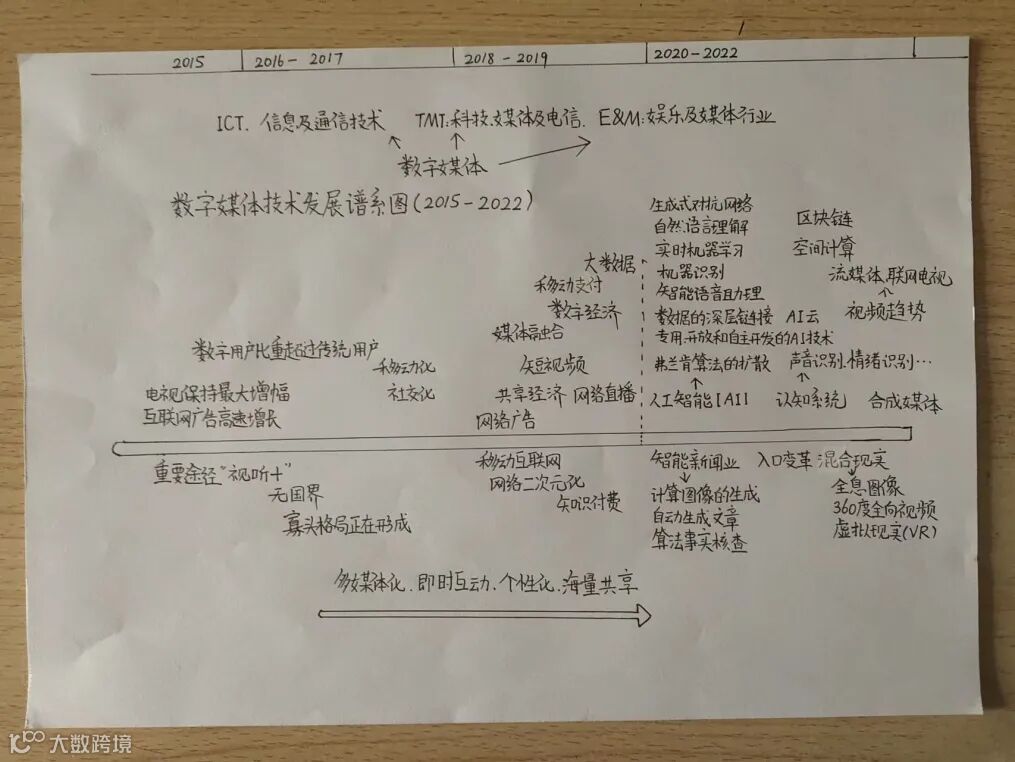 2015 2016-2017 2018-2019 2020-2022
ICT. 信息及通信技术 TMT:科技、媒体及电信. E&M:娱乐及媒体行业
数字媒体
数字媒体技术发展谱系图(2015-2022)
生成式对抗网络
自然语言理解 区块链
实时机器学习 空间计算
大数据
机器识别 流媒体、联网电视
移动支付
智能语音助理
数字经济
数据的深层链接 AI云 视频趋势
媒体融合
专用、开放和自主开发的AI技术
数字用户比重超过传统用户
移动化 短视频
弗兰肯算法的扩散 声音识别、情绪识别…
电视保持最大增幅 社交化 共享经济 网络直播
人工智能[AI] 认知系统 合成媒体
互联网广告高速增长 网络广告
重要途径"视听+" 移动互联网 智能新闻业 入口变革 混合现实
无国界 网络二次元化 计算图像的生成 全息图像
知识付费 360度全向视频
寡头格局正在形成 自动生成文章
算法事实核查 虚拟现实(VR)
多媒体化、即时互动、个性化、海量共享
大数跨境